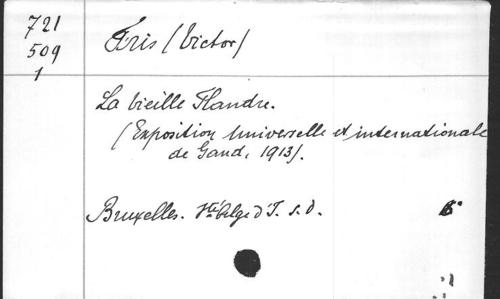 721
509
1
Fris (Victor)
La vieille Flandre.
(Exposition Universelle et internationale
de Gand, 1913).
Bruxelles. Sté belge d'I. s.d.